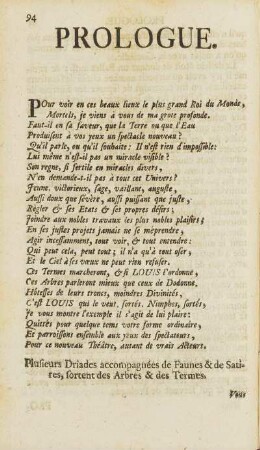 94
PROLOGUE.
POur voir en ces beaux lieux le plus grand Roi du Monde,
Mortels, je viens à vous de ma grote profonde.
Faut-il en sa faveur, que la Terre ou que l'Eau
Produisent à vos yeux un spectacle nouveau?
Qu'il parle, ou qu'il souhaite: Il n'est rien d'impossible:
Lui même n'est-il pas un miracle visible?
Son regne, si fertile en miracles divers,
N'en demande-t-il pas à tout cet Univers?
Jeune, victorieux, sage, vaillant, auguste,
Aussi doux que sévère, aussi puissant que juste,
Régler & ses Etats & ses propres désirs;
Joindre aux nobles travaux les plus nobles plaisirs;
En ses justes projets jamais ne se méprendre,
Agir incessamment, tout voir, & tout entendre:
Qui peut cela, peut tout; il n'a qu'à tout oser,
Et le Ciel à ses vœux ne peut rien refuser.
Ces Termes marcheront, & si LOUIS l'ordonne,
Ces Arbres parleront mieux que ceux de Dodonne,
Hôtesses de leurs troncs, moindres Divinités,
C'est LOUIS qui le veut, sortés, Nimphes, sortés,
Je vous montre l'exemple il s'agit de lui plaire:
Quittés pour quelque tems votre forme ordinaire,
Et paroissons ensemble aux yeux des spectateurs,
Pour ce nouveau Théatre, autant de vrais Acteurs.
Plusieurs Driades accompagnées de Faunes & de Sati-
res, sortent des Arbres & des Termes.
Vous